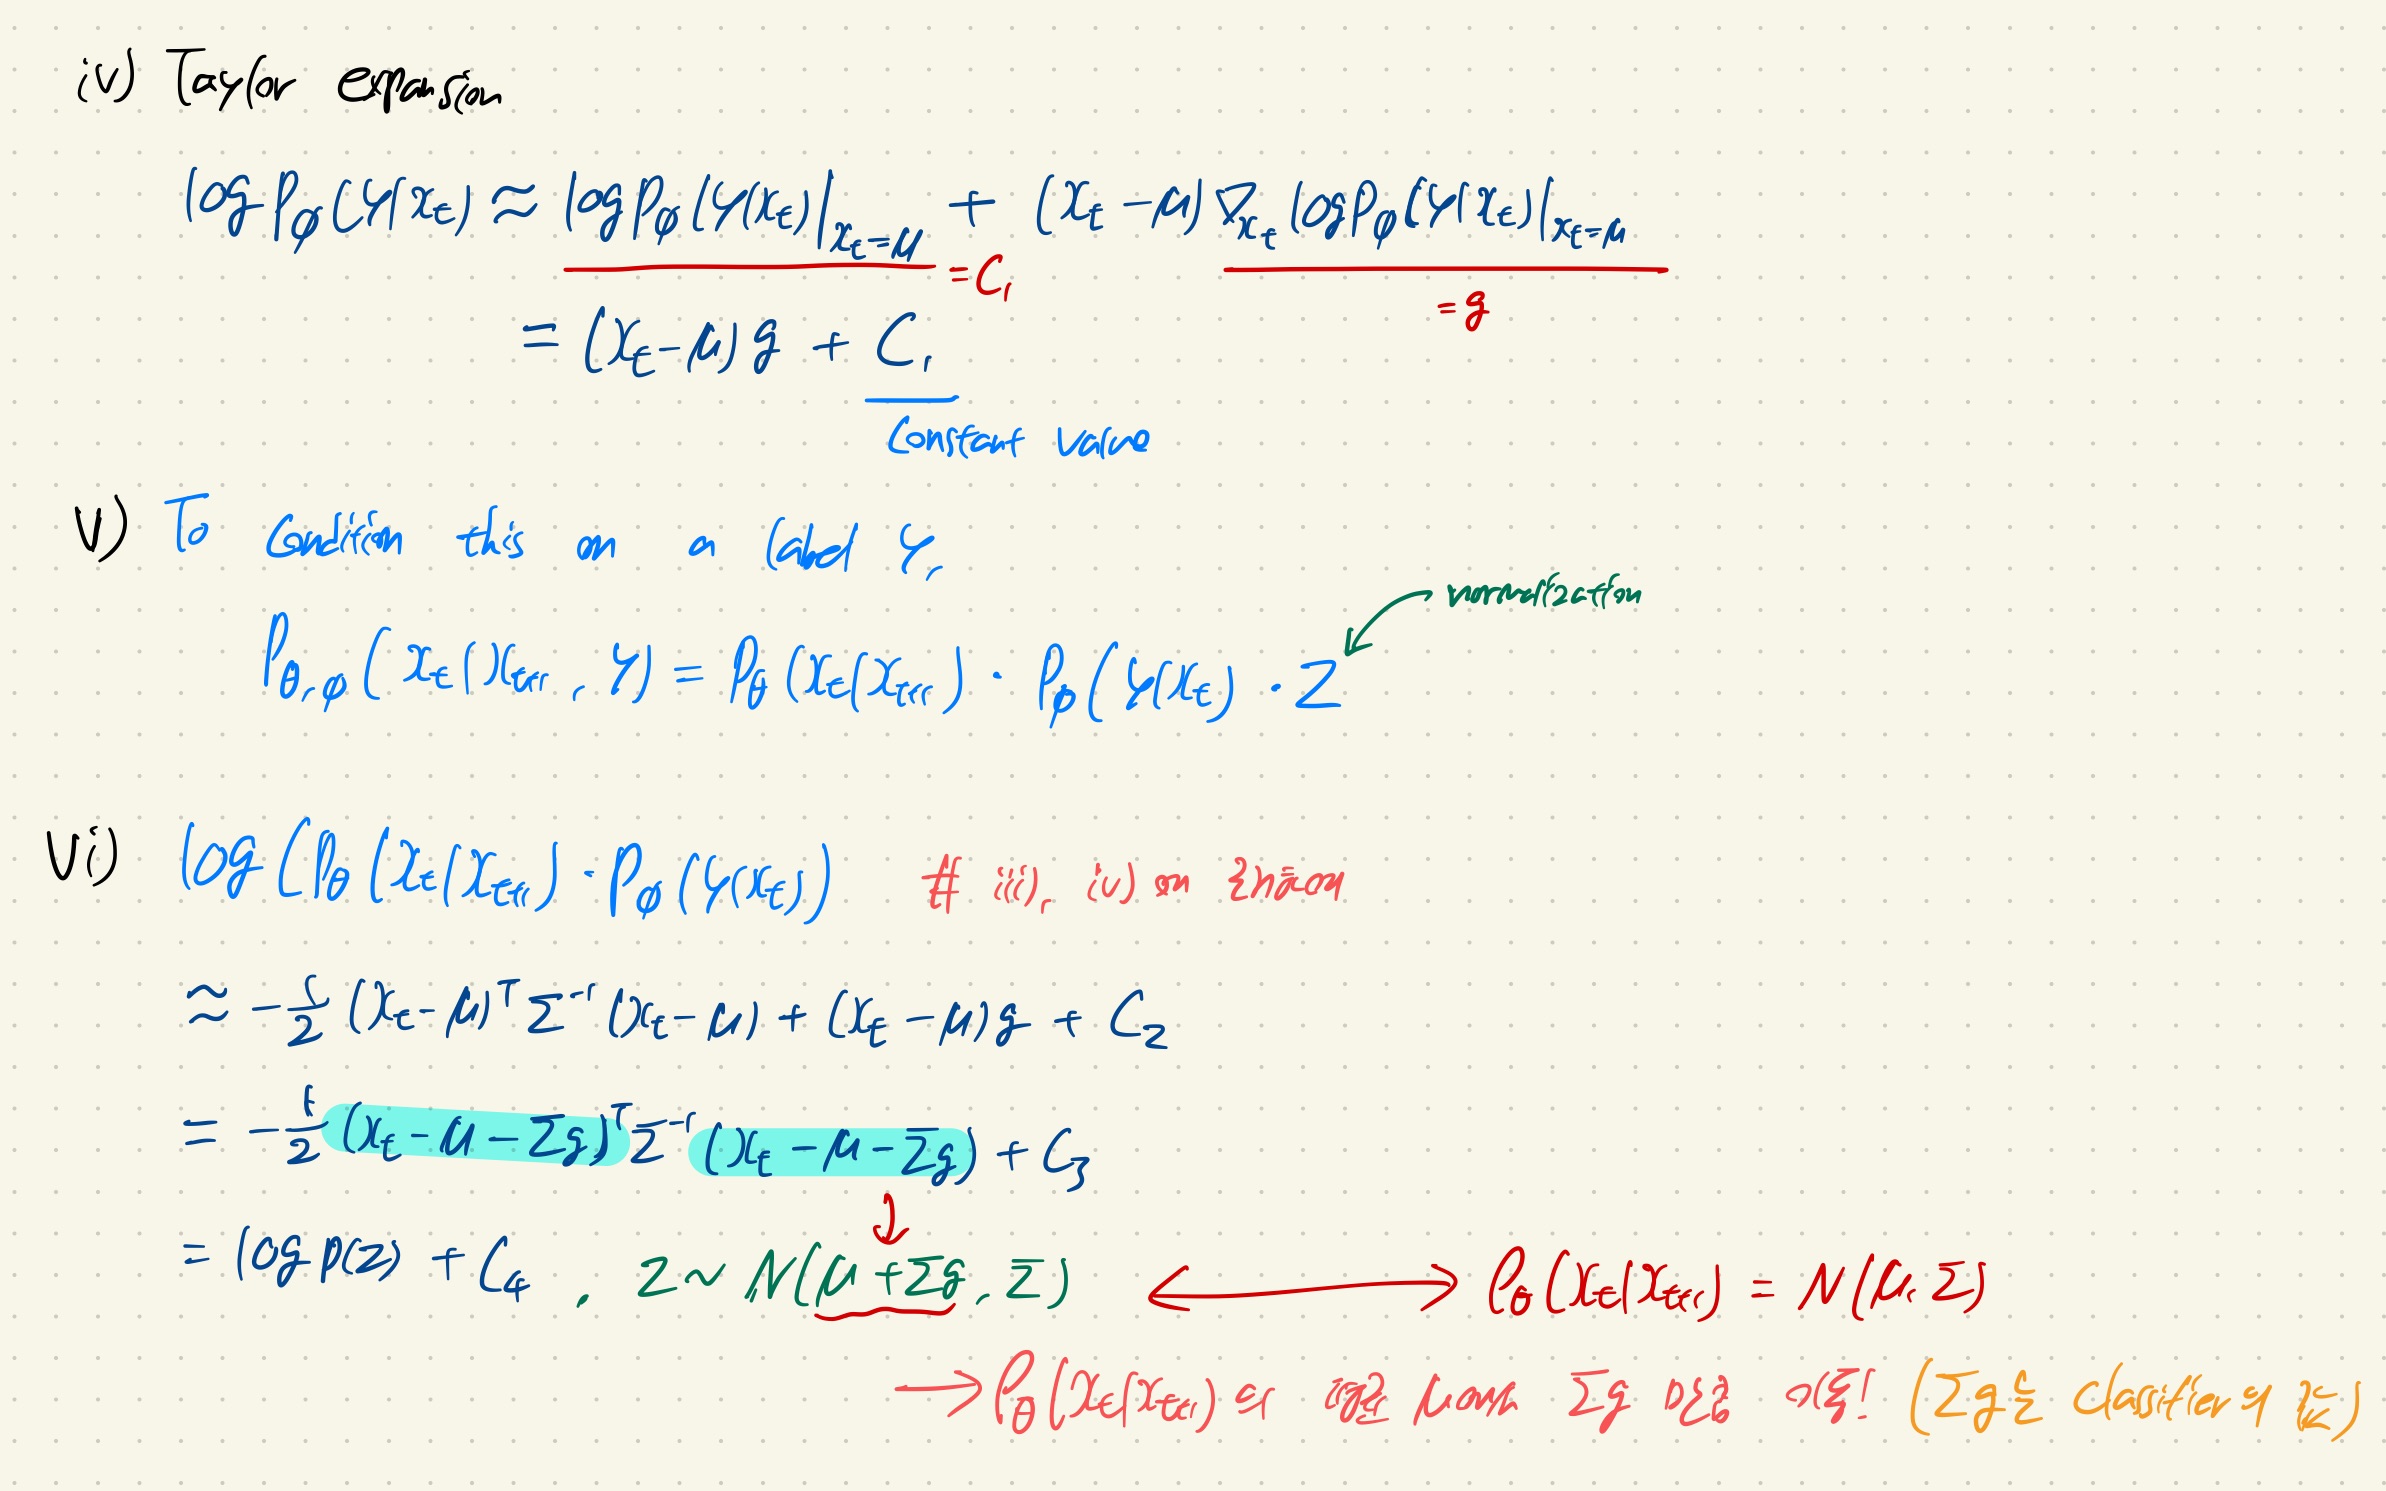 iv) Taylor expansion
log P_φ(y|x_t) ≈ log P_φ(y|x_t)|_{x_t=μ} + (x_t - μ) ∇_{x_t} log P_φ(y|x_t)|_{x_t=μ}
= C_1
= g
= (x_t - μ) g + C_1
Constant value
V) To condition this on a label y,
normalization
P_{θ,φ}(x_t|x_{t+1}, y) = P_θ(x_t|x_{t+1}) · P_φ(y|x_t) · Z
Vi) log(P_θ(x_t|x_{t+1}) · P_φ(y|x_t)) # iii), iv) on
≈ -1/2 (x_t - μ)^T Σ^{-1} (x_t - μ) + (x_t - μ) g + C_2
= -1/2 (x_t - μ - Σg)^T Σ^{-1} (x_t - μ - Σg) + C_3
= log p(z) + C_4 , z ~ N(μ + Σg, Σ) ⟷ P_θ(x_t|x_{t+1}) = N(μ, Σ)
→ P_θ(x_t|x_{t+1}) 에서 μ Σg ! (Σg는 classifier의 )